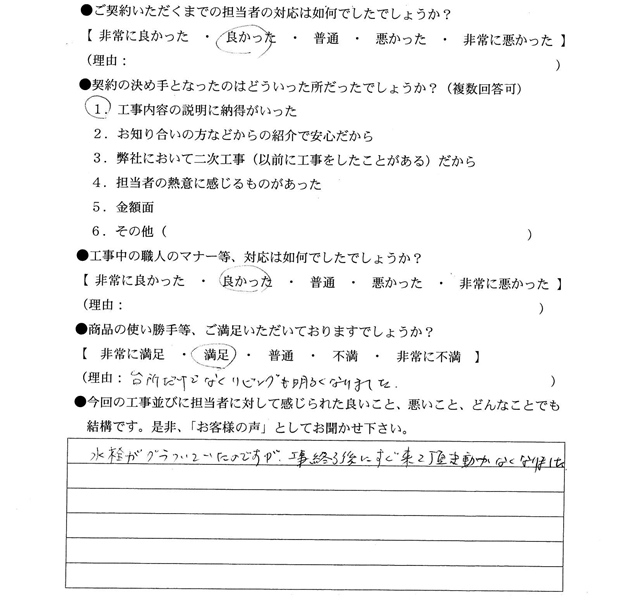 ●ご契約いただくまでの担当者の対応は如何でしたでしょうか？
【 非常に良かった ・ 良かった ・ 普通 ・ 悪かった ・ 非常に悪かった 】
（理由： ）
●契約の決め手となったのはどういった所だったでしょうか？（複数回答可）
１．工事内容の説明に納得がいった
２．お知り合いの方などからの紹介で安心だから
３．弊社において二次工事（以前に工事をしたことがある）だから
４．担当者の熱意に感じるものがあった
５．金額面
６．その他（ ）
●工事中の職人のマナー等、対応は如何でしたでしょうか？
【 非常に良かった ・ 良かった ・ 普通 ・ 悪かった ・ 非常に悪かった 】
（理由： ）
●商品の使い勝手等、ご満足いただいておりますでしょうか？
【 非常に満足 ・ 満足 ・ 普通 ・ 不満 ・ 非常に不満 】
（理由：台所だけでなくリビングも明るくなりました. ）
●今回の工事並びに担当者に対して感じられた良いこと、悪いこと、どんなことでも
結構です。是非、「お客様の声」としてお聞かせ下さい。
水栓がグラついていたのですが、工事終了後にすぐ来て頂き動かなくなりました